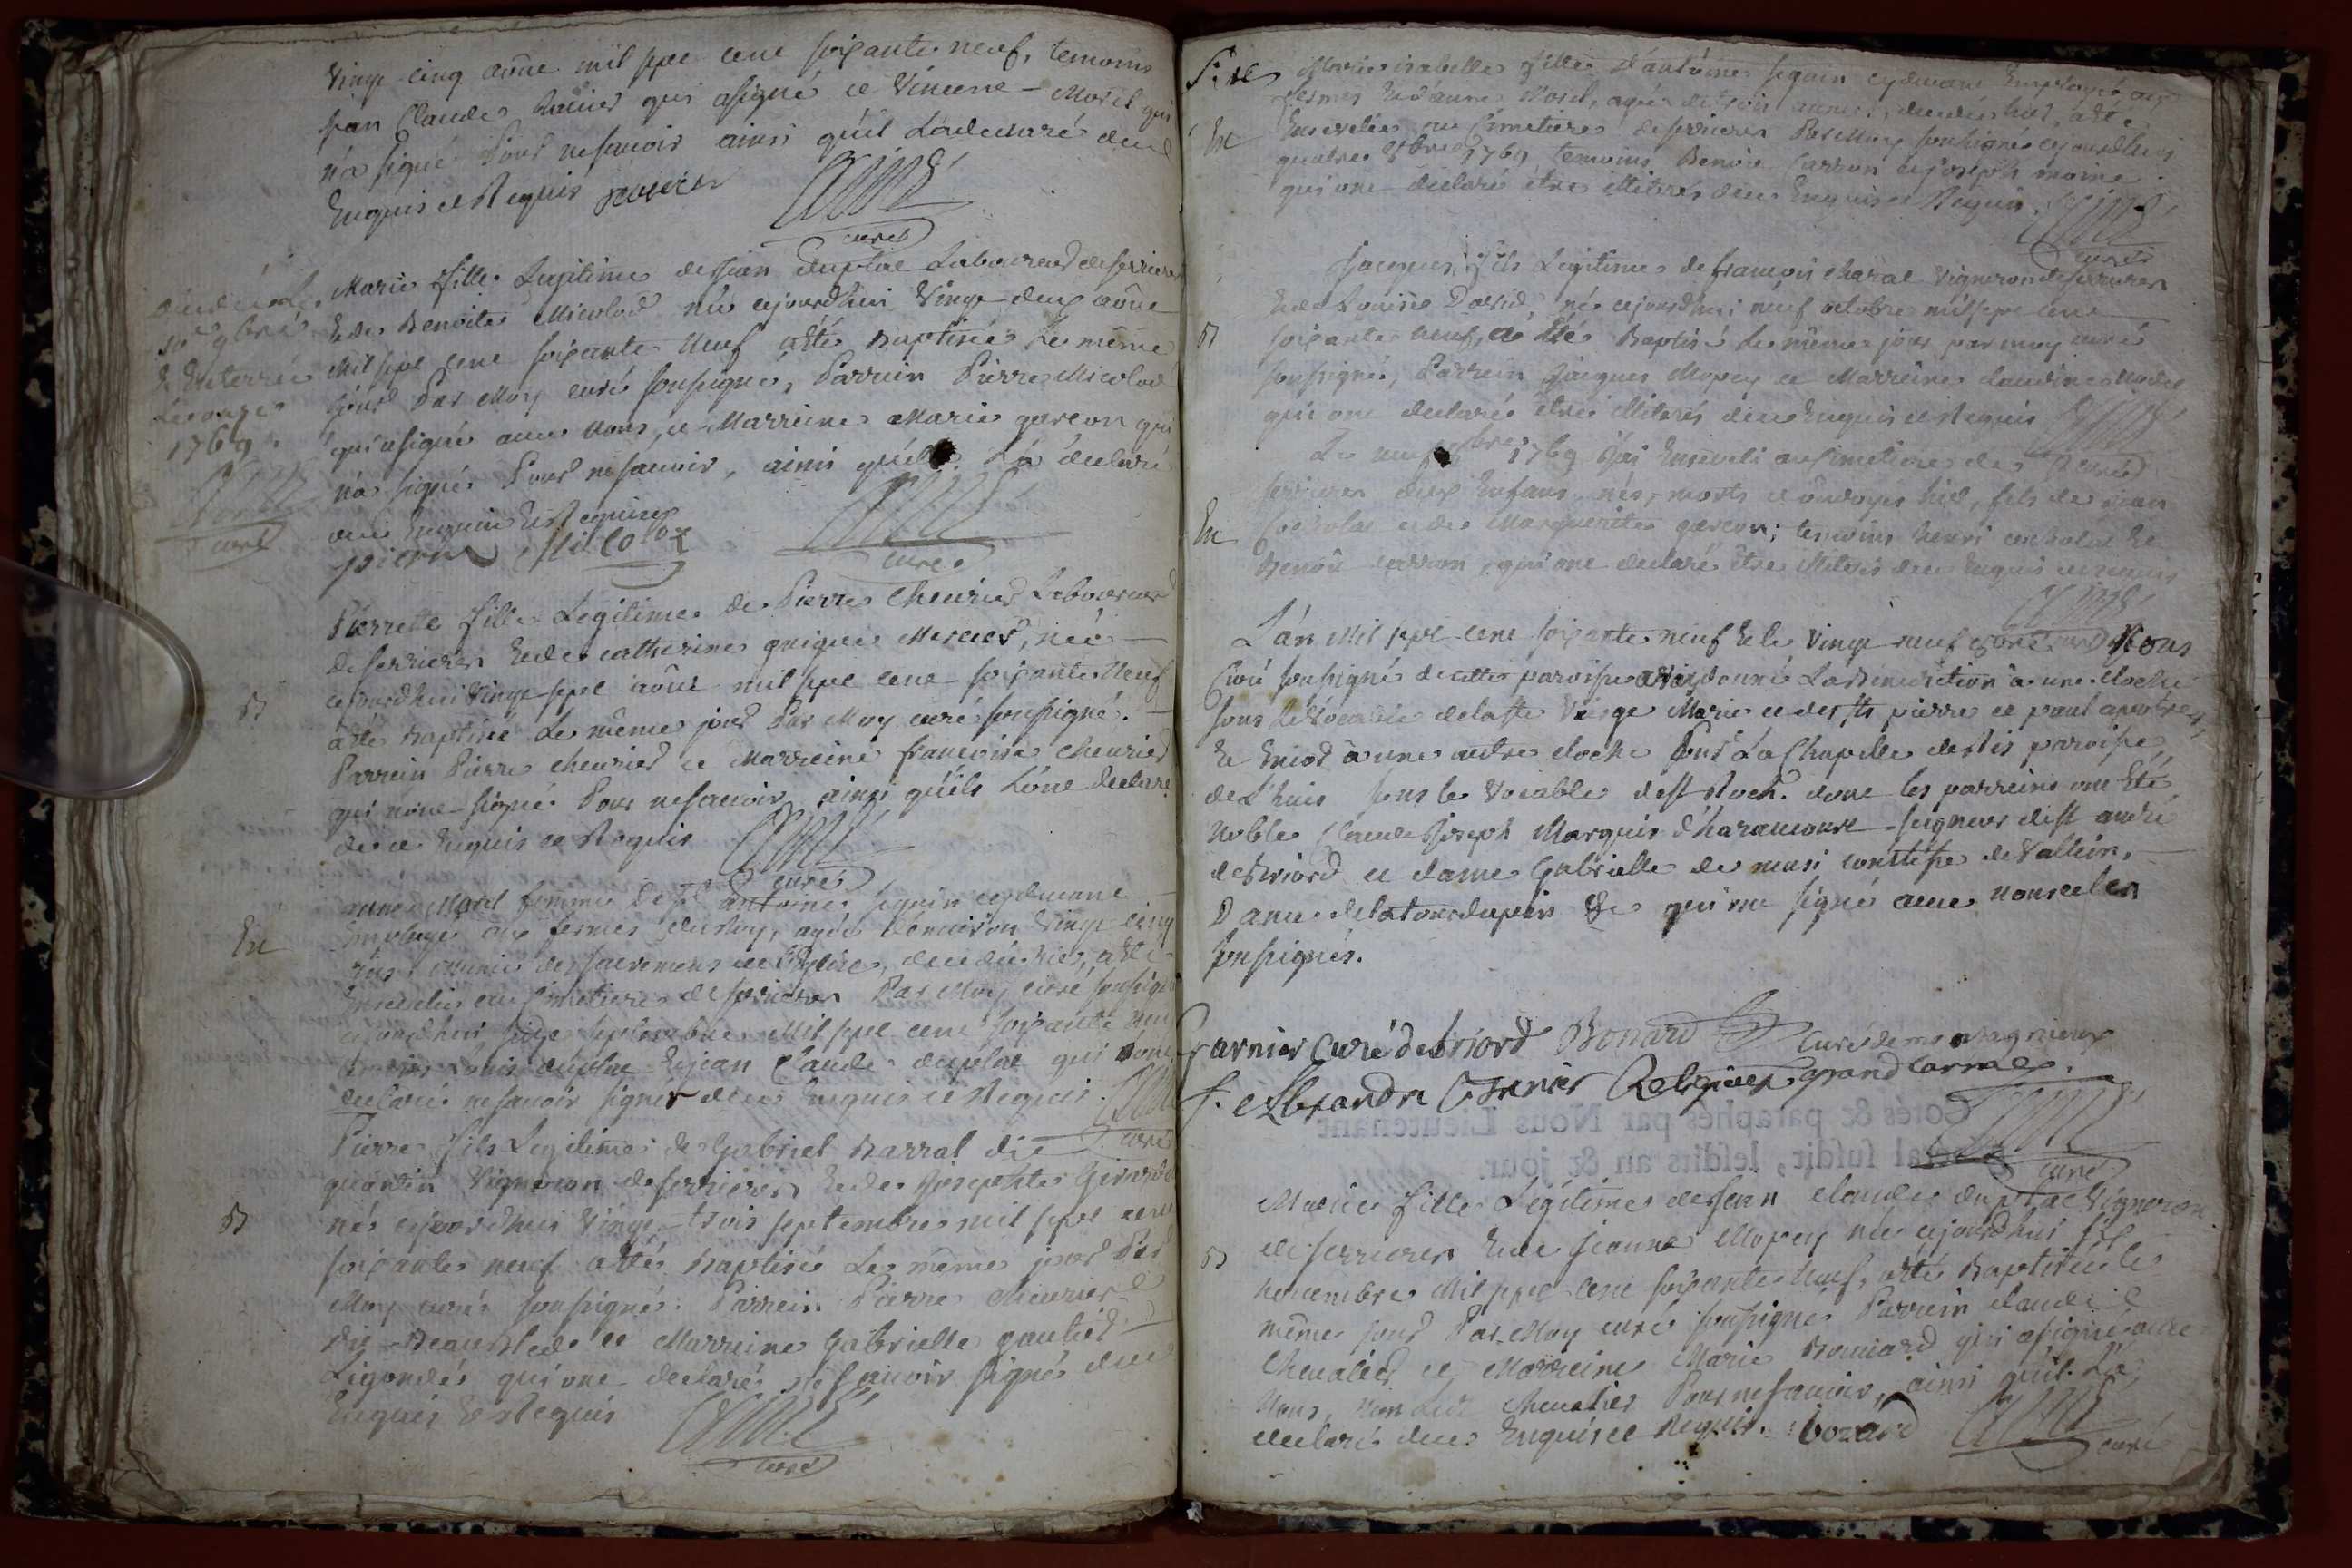 Vingt-cinq août mil sept cent soixante neuf, temoins
jean Claude qui a signé et Vincent Morel qui
n'a signé Pour ne savoir ainsi qu'il L'a declaré de ce
Enquis et Requis
curé
decedée Le
10e 7bre
& Enterrée
Le onze
1769.
curé
Marie fille Legitime de jean duplat Laboureur de serrieres
Et de Benoite Micolod née cejourd'hui Vingt-deux août
Mil sept cent soixante Neuf a été Baptisée Le même
jour Par Moy curé soussigné, Parrein Pierre Micolod
qui a signé avec Nous, et Marreine Marie garcon qui
n'a signé Pour ne savoir, ainsi qu'elle L'a declaré
de ce Enquise Et Requise
pierre Micolod
curé
Pierrette fille Legitime de Pierre Cheurier Laboureur
de serrieres Et de catherine Mercier, née
cejourd'hui Vingt-sept août mil sept cent soixante Neuf
B
a été Baptisée Le même jour Par Moy curé soussigné.
Parrein Pierre cheurier et Marreine francoise cheurier
qui n'ont signé Pour ne savoir ainsi qu'ils L'ont declaré
de ce Enquis et Requis
curé
anne Morel femme de Sr antoine seguin cydevant
En
Employé aux fermes du Roy, agée d'environ Vingt cinq
ans munie des sacremens de l'Eglise, decedée hier, a été
Ensevelie au Cimetiere de serrieres Par Moy curé soussigné
cejourd'hui, seize septembre Mil sept cent soixante neuf
temoins Louis duplat Et jean Claude duplat qui n'ont
declaré ne savoir signer de ce Enquis et Requis.
curé
Pierre fils Legitime de Gabriel Barrat dit
Vigneron de serrieres Et de josephte Girard
B
né cejourd'hui Vingt-trois septembre mil sept cent
soixante neuf a été Baptisé Le même jour Par
Moy curé soussigné. Parrein Pierre cheurier
dit et Marreine Gabrielle gautier
qui ont declaré ne savoir signer de ce
Enquis Et Requis
curé
Marie isabelle fille d'antoine seguin cydevant Employé aux
fermes Et d'anne Morel, agée de trois decedée hier, a été
En
Ensevelie au Cimetiere de serrieres Par Moy soussigné cejourd'hui
quatre 8bre 1769 temoins Benoit Carron et joseph moine
qui ont declaré être illiteres de ce Enquis et Requis.
curé
jacques fils Legitime de francois charat Vigneron de serrieres
Et de Louise David né cejourd'hui neuf octobre mil sept cent
B
soixante neuf, a été Baptisé Le même jour par moy curé
soussigné, Parrein jacques Mopey et Marreine claudine
qui ont declaré être illiterés de ce Enquis et Requis
curé
Le 1769 j'ai Enseveli au Cimetiere de
serrieres deux Enfans, nés, morts et ondoyés hier, fils de jean
En
et de Marguerite garcon; temoins henri Et
Benoit carron, qui ont declaré être illiterés de ce Enquis et requis
curé
L'an Mil sept cent soixante neuf Et le Vingt-neuf 8bre Nous
Curé soussigné de cette paroisse avons donné La Benediction à une cloche
sous Le Vocable de la Ste Vierge Marie et des Sts pierre et paul apotres
Et à une autre cloche Pour La Chapelle de paroisse
de L'huis sous le Vocable de St Roch. dont les parreins ont Eté
Noble Claude Joseph Marquis d'haraucourt seigneur de St andré
de Briord et dame Gabrielle de musi contesse de Vallin,
Dame de la tour du pin &c qui ont signé avec nous et les
soussignés.
Garnier Curé de briord Bonard Curé de
f. Alexandre Religieux grand Carme.
Cotés & paraphés par Nous Lieutenant
Général susdit, lesdits an & jour.
curé
Marie fille Légitime de jean claude duplat Vigneron
de serrieres Et de jeanne Mopey née cejourd'hui six
B
novembre Mil sept cent soixante Neuf, a été Baptisée le
même jour Par Moy curé soussigné Parrein claude
Chevalier et Marreine Marie Bonnard qui a signé avec
Nous, non Led. Chevalier Pour ne savoir, ainsi qu'il L'a
declaré de ce Enquis et Requis. bonard
curé